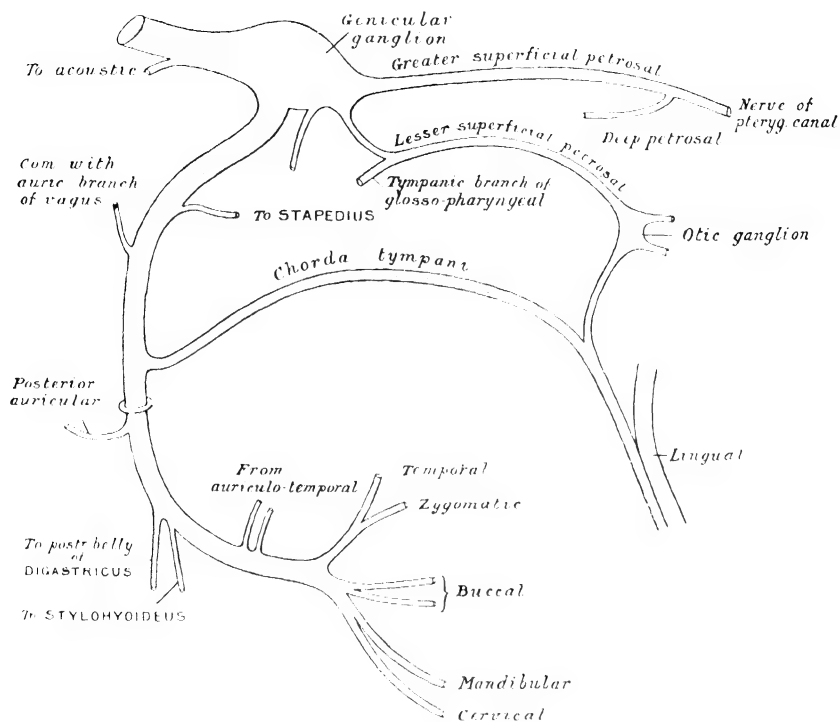 Genicular
ganglion
To acoustic
Greater superficial petrosal
Nerve of
pteryg. canal
Deep petrosal
Lesser superficial petrosal
Com with
auric branch
of vagus
Tympanic branch of
glosso-pharyngeal
To STAPEDIUS
Otic ganglion
Chorda tympani
Posterior
auricular
Lingual
From
auriculo-temporal
Temporal
Zygomatic
To postr belly
of
DIGASTRICUS
Buccal
To STYLOHYOIDEUS
Mandibular
Cervical